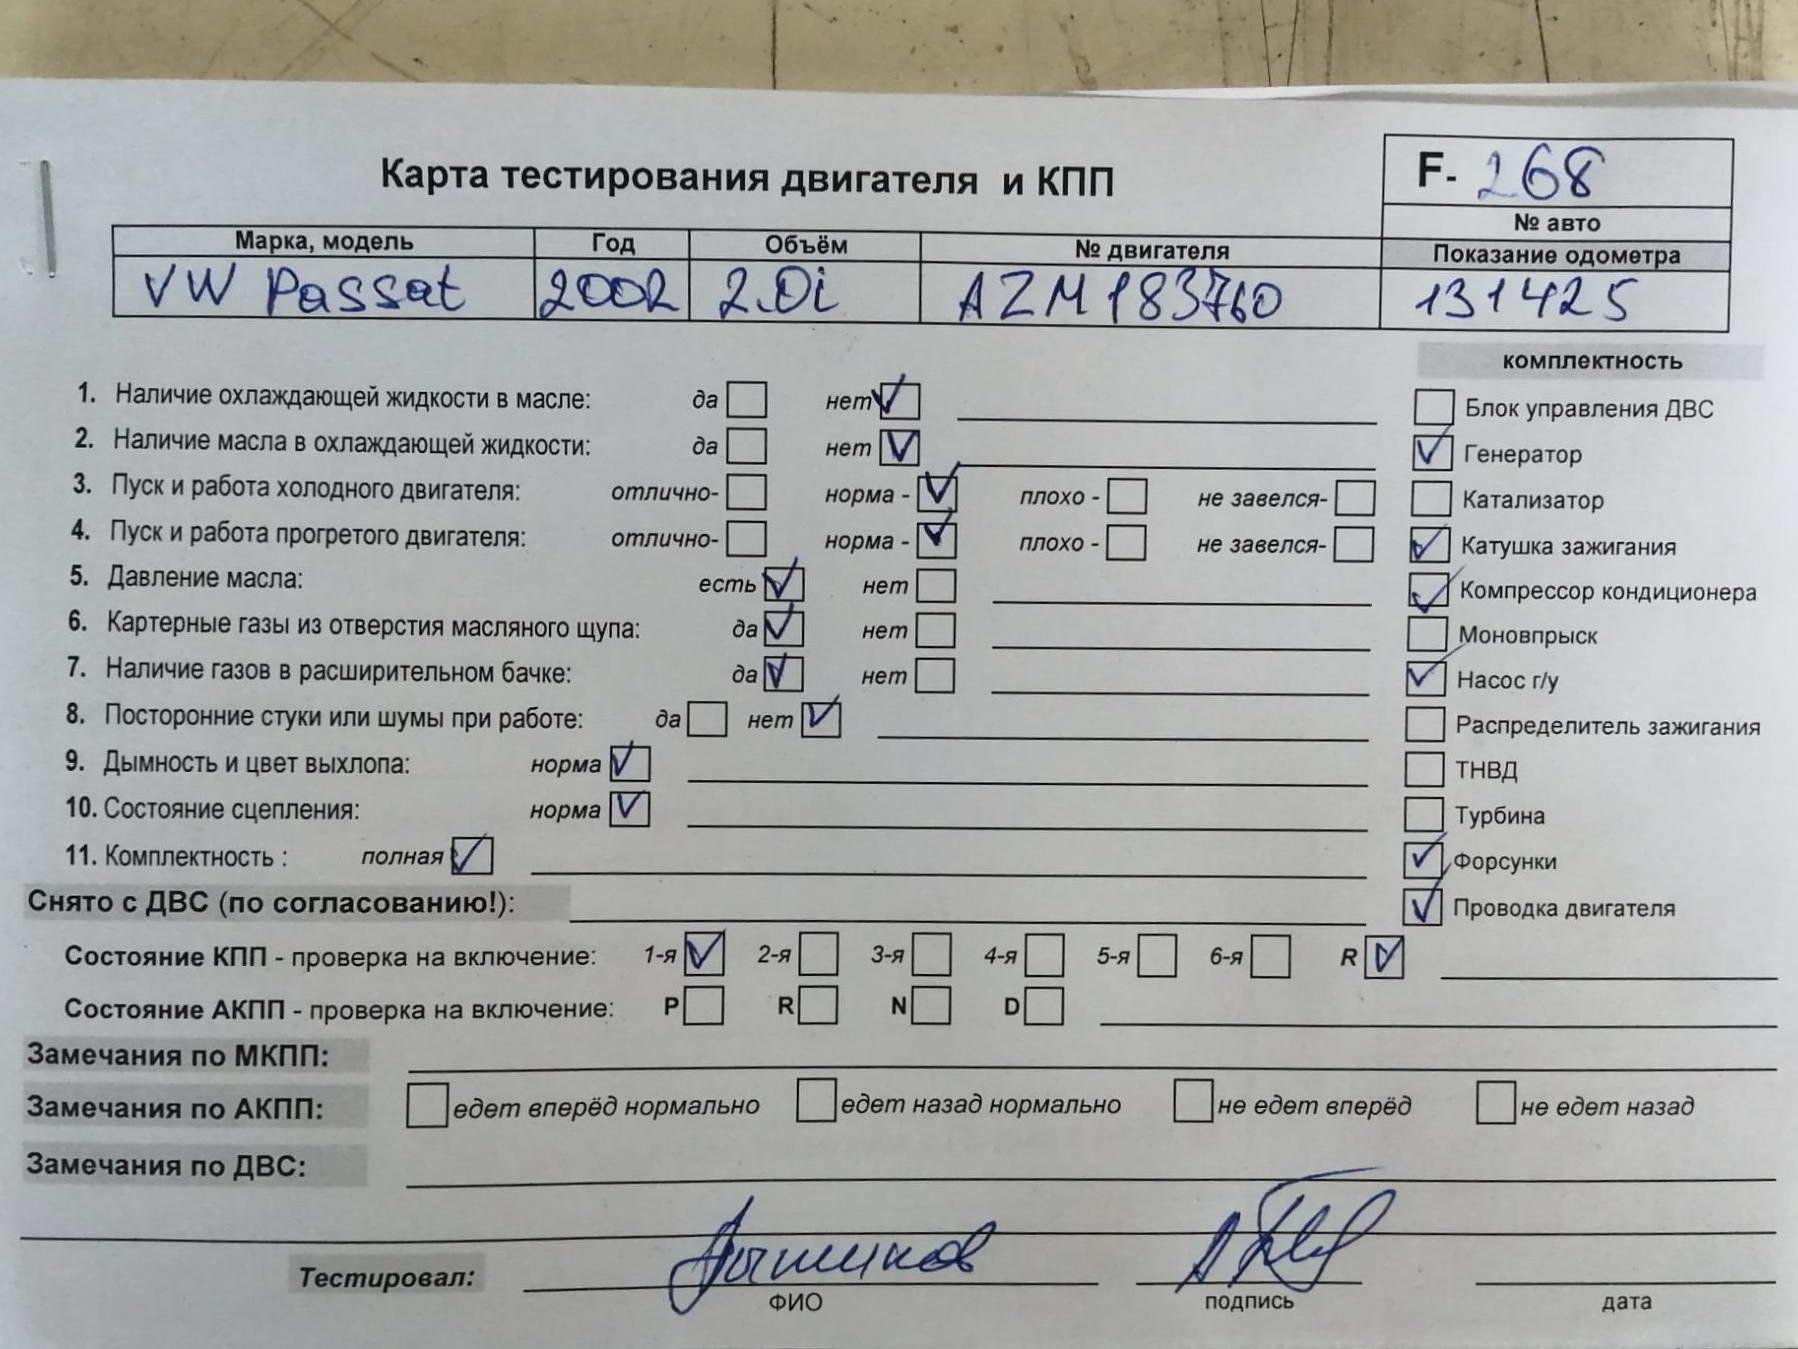 Карта тестирования двигателя и КПП
F- 268
№ авто
Марка, модель Год Объём № двигателя Показание одометра
VW Passat 2002 2.0i AZM183760 131425
комплектность
1. Наличие охлаждающей жидкости в масле: да нет
Блок управления ДВС
2. Наличие масла в охлаждающей жидкости: да нет
Генератор
3. Пуск и работа холодного двигателя: отлично- норма - плохо - не завелся-
Катализатор
4. Пуск и работа прогретого двигателя: отлично- норма - плохо - не завелся-
Катушка зажигания
5. Давление масла: есть нет
Компрессор кондиционера
6. Картерные газы из отверстия масляного щупа: да нет
Моновпрыск
7. Наличие газов в расширительном бачке: да нет
Насос г/у
8. Посторонние стуки или шумы при работе: да нет
Распределитель зажигания
9. Дымность и цвет выхлопа: норма
ТНВД
10. Состояние сцепления: норма
Турбина
11. Комплектность : полная
Форсунки
Снято с ДВС (по согласованию!):
Проводка двигателя
Состояние КПП - проверка на включение: 1-я 2-я 3-я 4-я 5-я 6-я R
Состояние АКПП - проверка на включение: P R N D
Замечания по МКПП:
Замечания по АКПП: едет вперёд нормально едет назад нормально не едет вперёд не едет назад
Замечания по ДВС:
Тестировал:
ФИО подпись дата